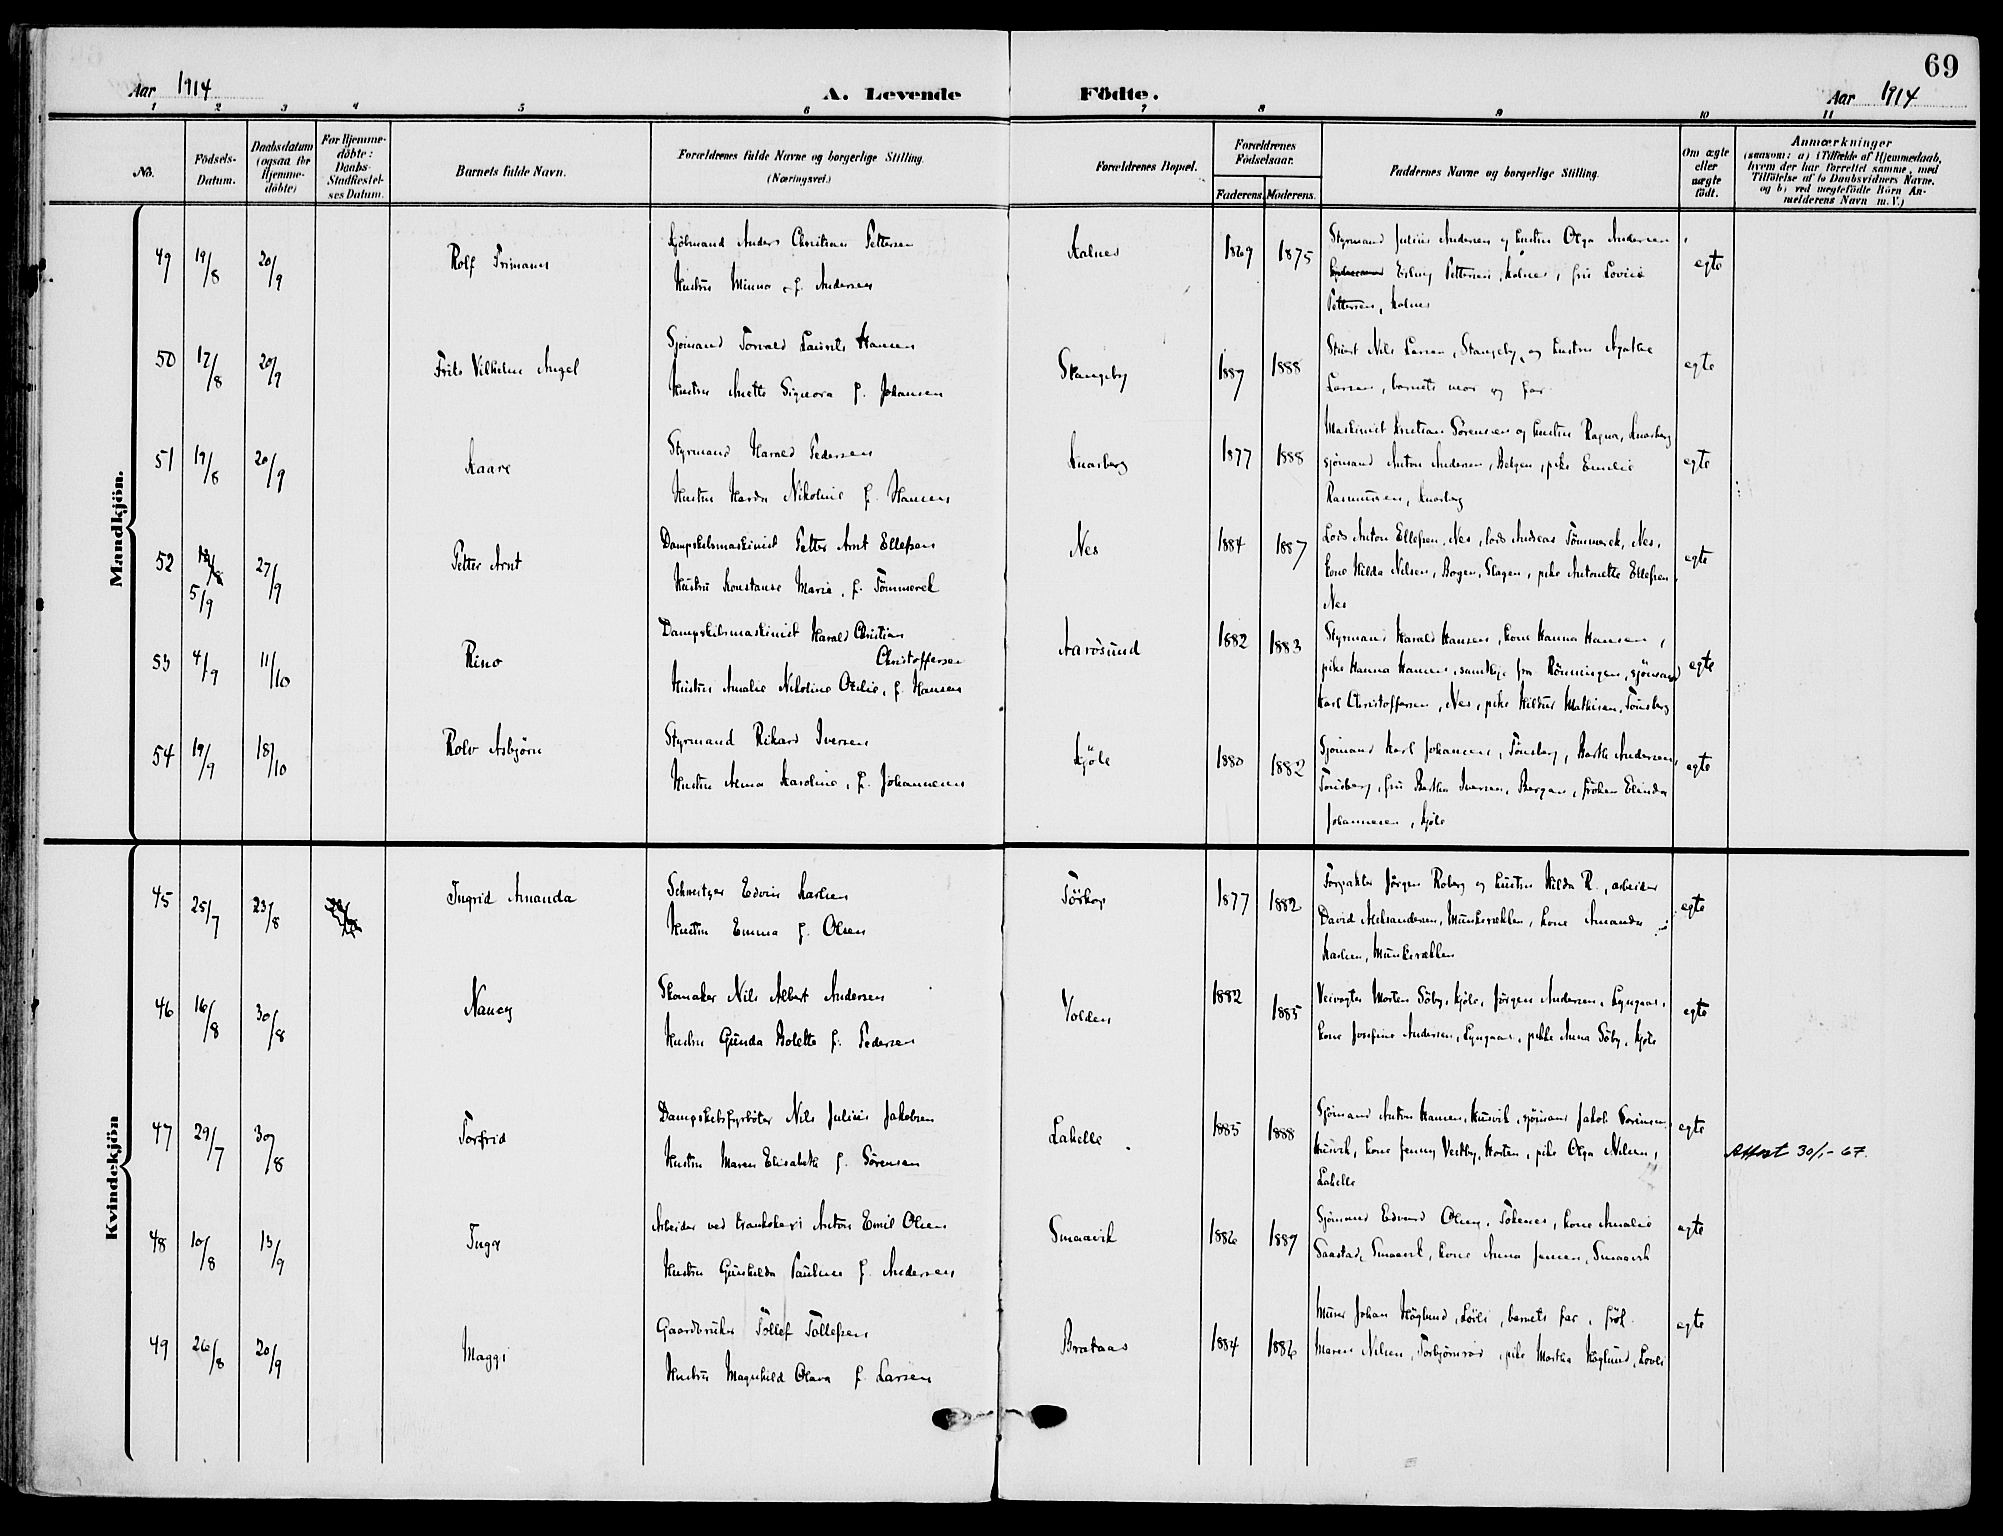 69
Aar 1914
A. Levende Födte.
Aar 1914
1 2 3 4 5 6 7 8 9 10 11
No.
Födsels-Datum.
Daabsdatum (ogsaa for Hjemme-döbte)
For Hjemme-döbte: Daabs-Stadfæstel-ses Datum.
Barnets fulde Navn.
Forældrenes fulde Navne og borgerlige Stilling. (Næringsvei.)
Forældrenes Bopæl.
Forældrenes Födselsaar.
Faderens. Moderens.
Faddernes Navne og borgerlige Stilling.
Om ægte eller uægte födt.
Anmærkninger
(saasom: a) i Tilfælde af Hjemmedaab,
hvem der har forrettet samme, med
Tilföielse af to Daabsvidners Navne,
og b) ved uægtefödte Börn An-
melderens Navn m. V.)
Mandkjön.
49 19/8 20/9 Rolf
Anders Christian Pettersen
Hustru Minna f. Andersen
1869 1875
Styrmand Julius Andersen og hustru Olga Andersen
Erling Pettersen, fru Lovise
Pettersen,
egte
50 17/8 20/9 Frits Vilhelm Angel
Sjömand Torvald Laurits Hansen
Hustru Anette Signora f. Johansen
Skangeby 1887 1888
Nils Larsen, Stangeby, og hustru Agathe
Larsen, barnets mor og far
egte
51 19/8 20/9 Kaare
Styrmand Harald Pedersen
Hustru Harda Nikoline f. Hansen
Knarberg 1877 1888
Maskinist Kristian Sörensen og hustru Ragna, Knarberg
sjömand Anton Andersen, Bolgen, pike Emilie
Rasmussen, Knarberg
egte
52 5/9 27/9 Petter Arnt
Dampskibsmaskinist Petter Arnt Ellefsen
Hustru Konstanse Marie, f. Tömmerek
Nes 1884 1887
Lods Anton Ellefsen, Nes, lods Andreas Tömmerek, Nes,
kone Hilda Nilsen, Bogen, Slagen, pike Antonette Ellefsen,
Nes
egte
53 4/9 11/10 Rino
Dampskibsmaskinist Harald Christian
Christoffersen
Hustru Amalie Nikoline Otilie, f. Hansen
Aarösund 1882 1883
Styrmand Harald Hansen, kone Hanna Hansen,
pike Hanna Hansen, samtlige fra Rönningen, sjömand
Karl Christoffersen, Nes, pike Hildur Mathisen, Tönsberg
egte
54 19/9 18/10 Rolv Asbjörn
Styrmand Rikard Iversen
Hustru Anna Karoline, f. Johannesen
Kjöle 1880 1882
Sjömand Karl Johansen, Tönsberg, Andersen,
Tönsberg, fru Bertha Iversen, Bergan, fröken
Johannesen, Kjöle
egte
Kvindekjön
45 25/7 23/8 Ingrid Amanda
Schweitzer Edvin Karlsen
Hustru Emma f. Olsen
1877 1882
Forpakter Jörgen Roberg og hustru Hilda R., arbeider
David Aleksandersen, Munkerækken, kone Amanda
Karlsen, Munkerækken
egte
46 16/8 30/8 Nancy
Skomaker Nils Albert Andersen
Hustru Gunda Bolette f. Pedersen
Volden 1882 1885
Veivogter Morten Söby, Kjöle, Jörgen Andersen, Lyngaas,
kone Josefine Andersen, Lyngaas, pikke Anna Söby, Kjöle
egte
47 29/7 30/8 Torfrid
Dampskibsfyrböter Nils Julius Jakobsen
Hustru Maren Elisabeth f. Sörensen
Lahelle 1885 1888
Sjömand Anton Hansen, Husvik, sjömand Jakob Sörensen,
Husvik, kone Jenny Vestby, Horten, pike Olga Nilsen,
Lahelle
egte
Attest 30/1-67.
48 10/8 13/9 Inga
Arbeider ved trankokeri Anton Emil Olsen
Hustru Gunhilda Pauline f. Andersen
Smaavik 1886 1889
Sjömand Edvard Olsen, Tokenes, kone Amalie
Saastad, Smaavik, kone Anna Jensen, Smaavik
egte
49 26/8 20/9 Maggi
Gaardbruker Tollef Tollefsen
Hustru Magnhild Olava f. Larsen
Brataas 1884 1886
Murer Johan Höglund, barnets far, fröl.
Maren Nilsen, Torbjörnröd, pike Martha Höglund,
egte